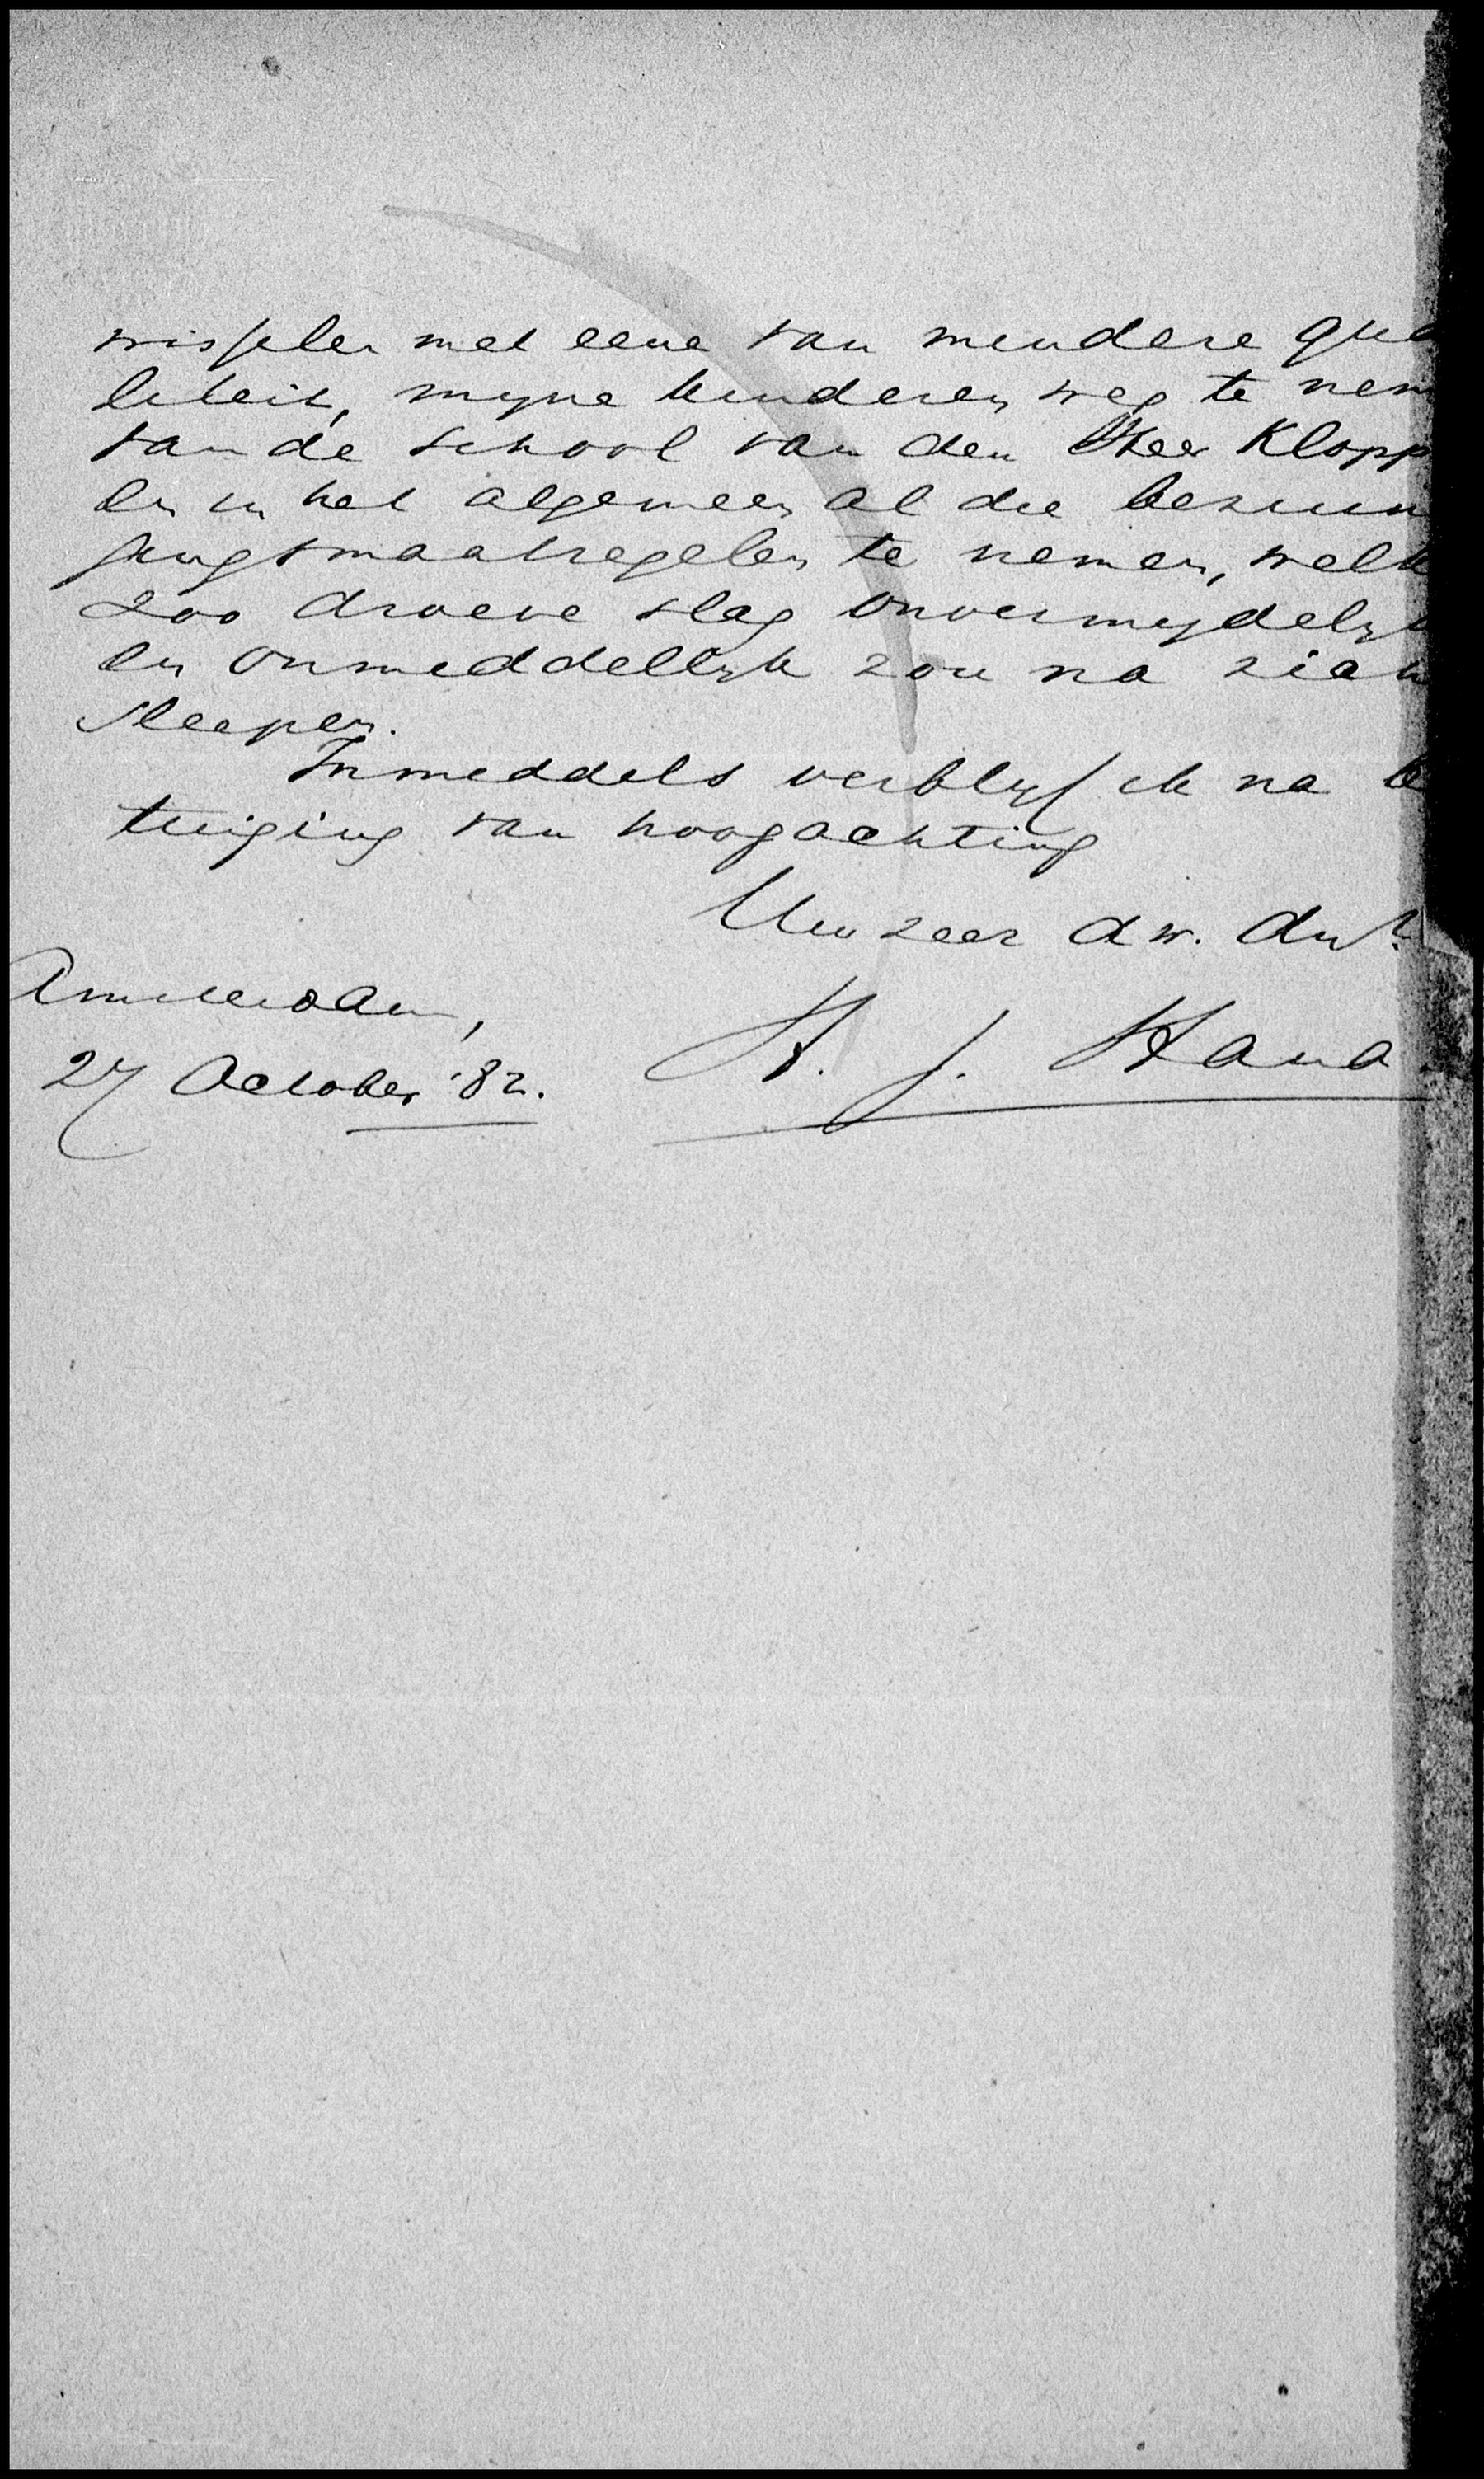 wisselen met eene van mindere qua
liteit, myne kinderen weg te nem
van de school van den Heer Klopp
en in het algemeen al die bezuin
gingsmaatregelen te nemen, welk
zoo droeve slag onvermydelyk
en onmiddellyk zou na zich
sleepen.
Inmiddels verblyf ik na be
tuiging van hoogachting
Uw zeer dw. dnr
Amsterdam,
H. J. Hana
27 October '82.